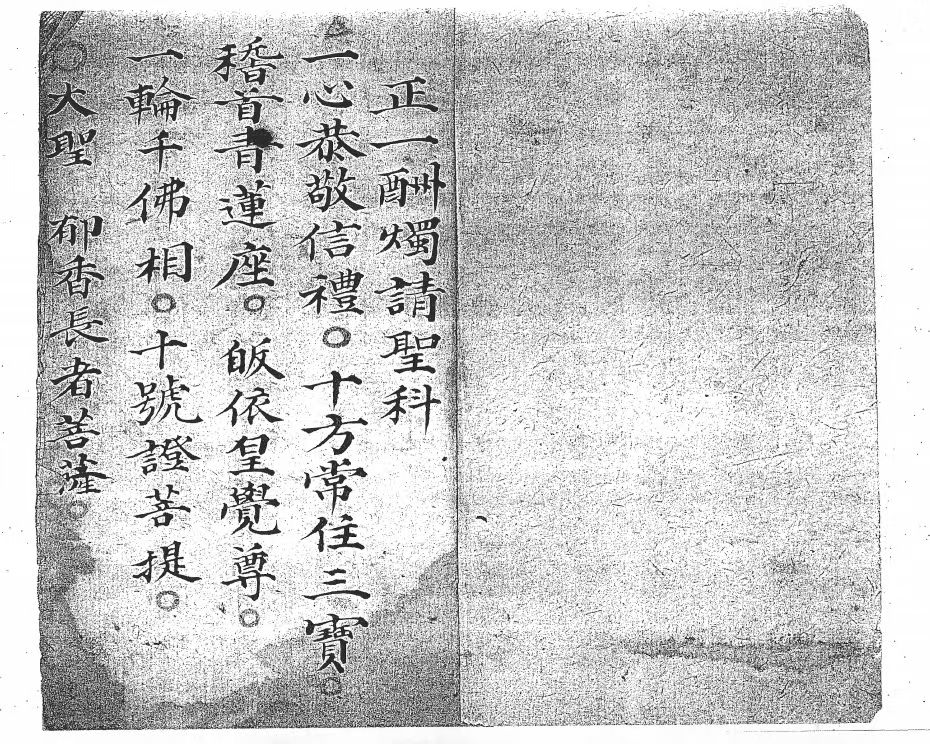 正一酬燭請聖科
一心恭敬信禮。十方常住三寶。
稽首青蓮座。皈依皇覺尊。
一輪千佛相。十號證菩提。
大聖　郁香長者菩薩。